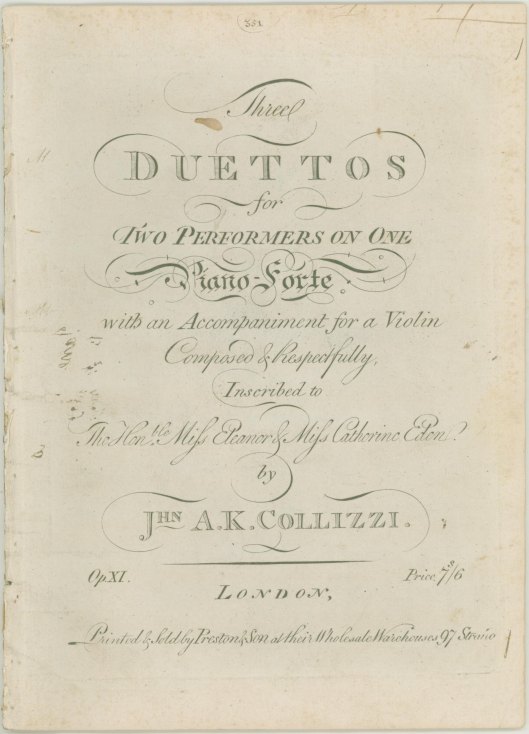 351
Three
DUETTOS
for
TWO PERFORMERS ON ONE
Piano-Forte
with an Accompaniment for a Violin
Composed & Respectfully
Inscribed to
The Hon.ble Miss Eleanor & Miss Catherine Eden.
by
JHN A.K. COLLIZZI.
Op. XI. Price 7s/6
LONDON,
Printed & Sold by Preston & Son at their Wholesale Warehouses, 97 Strand